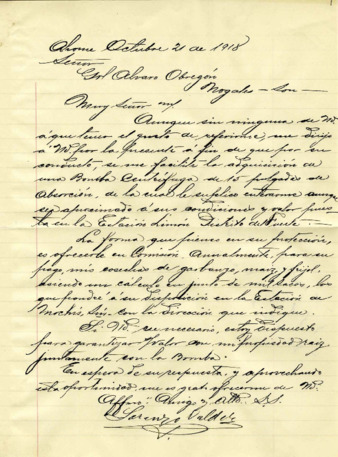 Ahome Octubre 21 de 1918
Señor
Gral Alvaro Obregón
Nogales - Son -
Muy Señor mío
Aunque sin ninguna de Ud
a que tener el gusto de referirme, me dirijo
á Ud por la presente á fin de que por su
conducto, se me facilite la adquisición de
una Bomba Centrífuga de 15 pulgadas de
absorción, de la cual le suplico enterarme aunque
sea aproximado á sus condiciones y valor puesta
en la Estación Limón Distrito del Fuerte -
La forma que pienso en su
es ofrecerle en Comisión Anualmente, para su
pago, mis cosechas de garbanzo, maíz y frijol.
haciendo un cálculo en punto de mil sacos, los
que pondré á su disposición en la Estación de
Mochis, Sin. con la Dirección que indique.
Si Ud. cree necesario, estoy dispuesto
para garantizar Valor con mi propiedad raíz
juntamente con la Bomba.
En espera de su respuesta, y aprovechando
esta oportunidad, me es grato ofrecerme de Ud.
Affmo. Amigo y Atto. S.S.
Lorenzo Valdéz